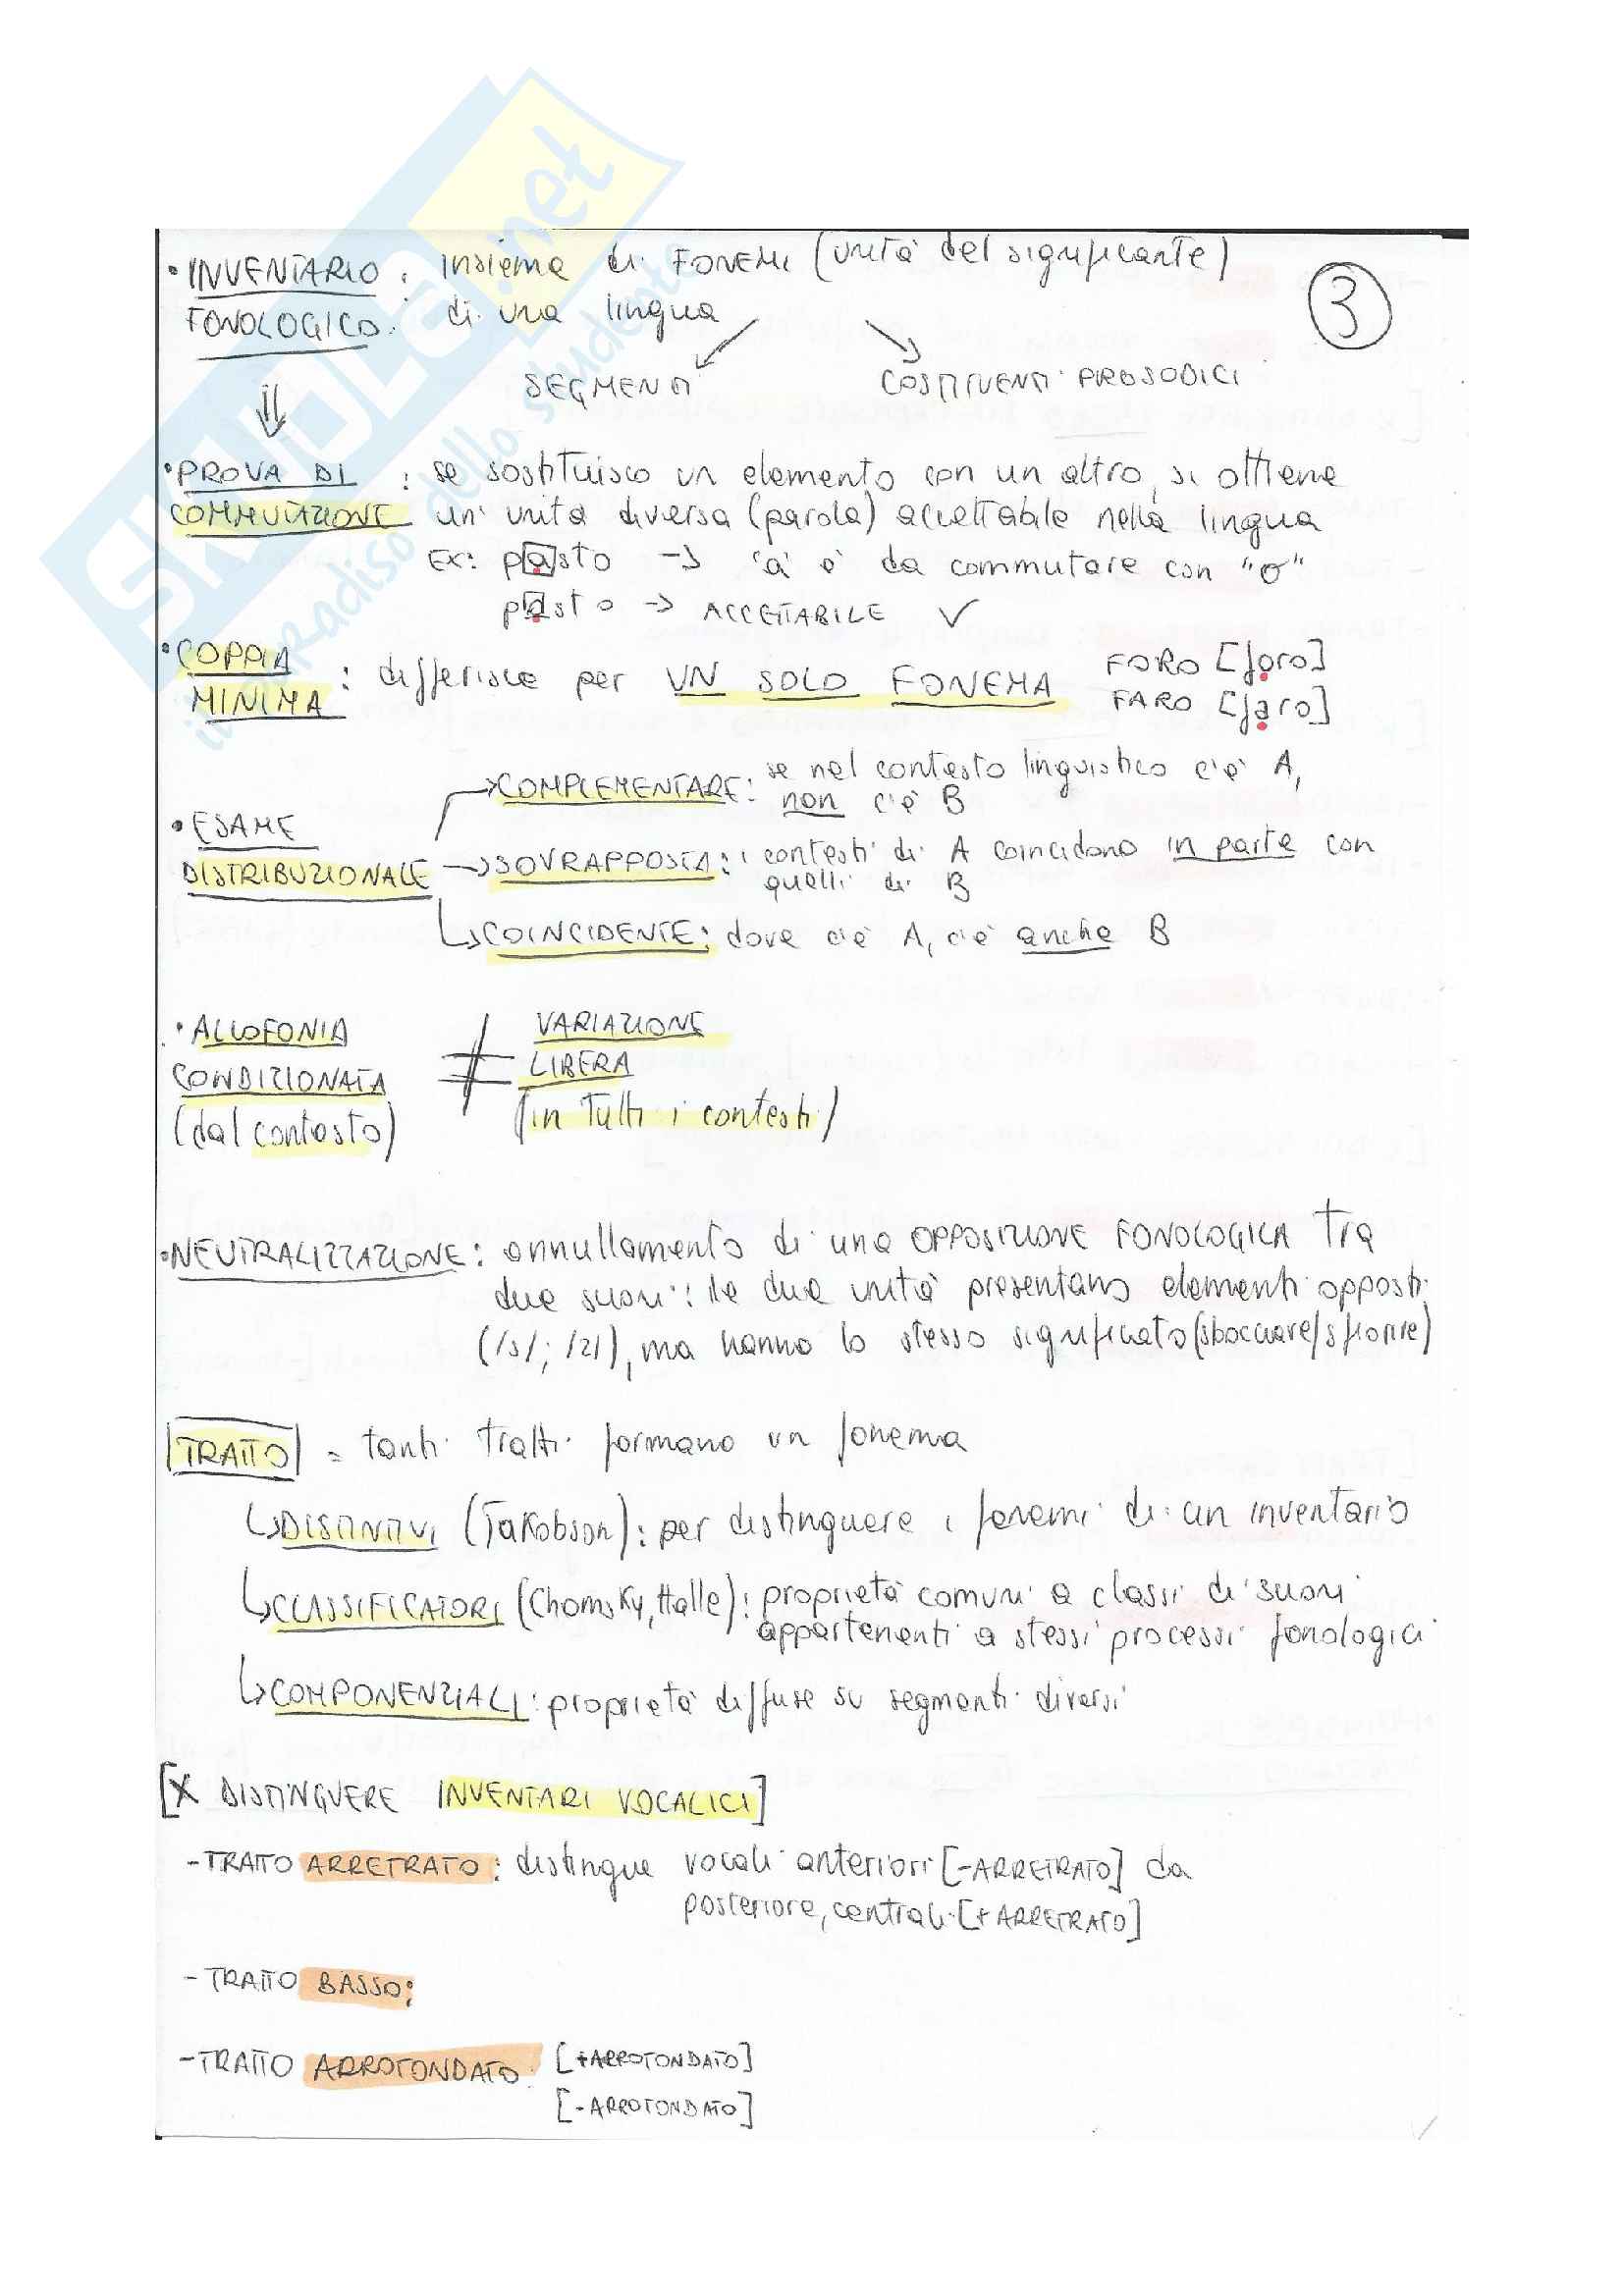 SKUOLA.net
il paradiso dello studente
• INVENTARIO : insieme di FONEMI (unità del significante)
FONOLOGICO. di una lingua
3
SEGMENTI COSTITUENTI PROSODICI
• PROVA DI : se sostituisco un elemento con un altro, si ottiene
COMMUTAZIONE un' unità diversa (parola) accettabile nella lingua
Ex: pasto -> "a" è da commutare con "o"
posto -> ACCETTABILE ✓
• COPPIA
MINIMA : differisce per UN SOLO FONEMA
FORO [foro]
FARO [faro]
→ COMPLEMENTARE: se nel contesto linguistico c'è A,
non c'è B
• ESAME
DISTRIBUZIONALE → SOVRAPPOSTA: i contesti di A coincidono in parte con
quelli di B
↳ COINCIDENTE: dove c'è A, c'è anche B
• ALLOFONIA ≠ VARIAZIONE
CONDIZIONATA LIBERA
(dal contesto) (in tutti i contesti)
• NEUTRALIZZAZIONE: annullamento di una OPPOSIZIONE FONOLOGICA tra
due suoni: le due unità presentano elementi opposti
(/s/; /z/), ma hanno lo stesso significato (sbocciare/sfiorire)
TRATTO = tanti tratti formano un fonema
↳ DISTINTIVI (Jakobson): per distinguere i fonemi di un inventario
↳ CLASSIFICATORI (Chomsky, Halle): proprietà comuni a classi di suoni
appartenenti a stessi processi fonologici
↳ COMPONENZIALI: proprietà diffuse su segmenti diversi
[X DISTINGUERE INVENTARI VOCALICI]
- TRATTO ARRETRATO: distingue vocali anteriori [-ARRETRATO] da
posteriore, centrali [+ARRETRATO]
- TRATTO BASSO:
- TRATTO ARROTONDATO. [+ARROTONDATO]
[-ARROTONDATO]